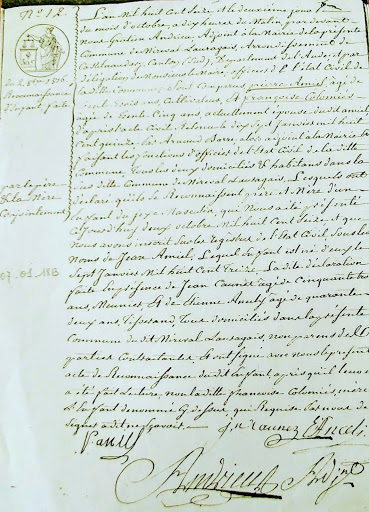 N.° 12.
Du 2 8bre 1816
Reconnaissance
d'Enfant faite
par le père
& la Mère
Conjointement
07.01.1813
L'an Mil huit Cent Seize & le deuxième jour
du mois d'octobre, à dix heures du Matin, par devant
Nous Andrieu Adjoint à la Mairie de la présente
Commune de Mireval Lauragais, Arrondissement de
Castelnaudary, Canton Sud, Département de l'Aude, & par
délégation de Monsieur le Maire, officier de l'Etat Civil de
ladite Commune, sont Comparus pierre Amiel âgé de
trois ans Cultivateur, & françoise Colomiès
âgée de trente Cinq ans actuellement épouse dudit amiel
d'après l'acte Civil, retenu le deux Janvier mil huit
Cent quinze, par Arnaud Barre, adjoint à la Mairie
faisant les fonctions d'officier de l'Etat Civil de la dite
Commune, tous deux domiciliés & habitans dans la
susdite Commune de Mireval Lauragais, Lesquels ont
déclaré qu'ils se Reconnaissent père & Mère d'un
Enfant du sexe Masculin, qui Nous a été présenté
aujourd'huy deux octobre Mil huit Cent Seize & que
nous avons inscrit sur les registres de l'Etat Civil sous les
Noms de Jean Amiel, Lequel Enfant est né
Sept Janvier Mil huit Cent Treize. La dite déclaration
faite En présence de Jean Caunes âgé de Cinquante
ans, Meunier & de Etienne âgé de quarante
deux ans, Tisserand, Tous domiciliés dans la présente
Commune de Mireval Lauragais, non parens de
parties Contractantes, & ont signé avec nous le présent
acte de Reconnaissance dudit Enfant, après qu'il leur
a été fait Lecture, non la dite françoise Colomiès, mère
de l'Enfant dénommé Cy dessus, qui Requise par nous de
signer a dit ne savoir.
Andrieu Adjt